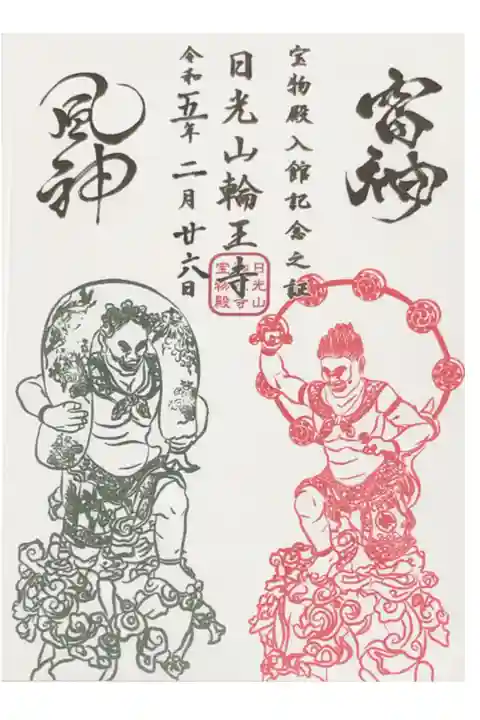 雷神
宝物殿入館記念之証
日光山輪王寺
令和五年二月廿六日
風神
日光山
輪王寺
宝物殿